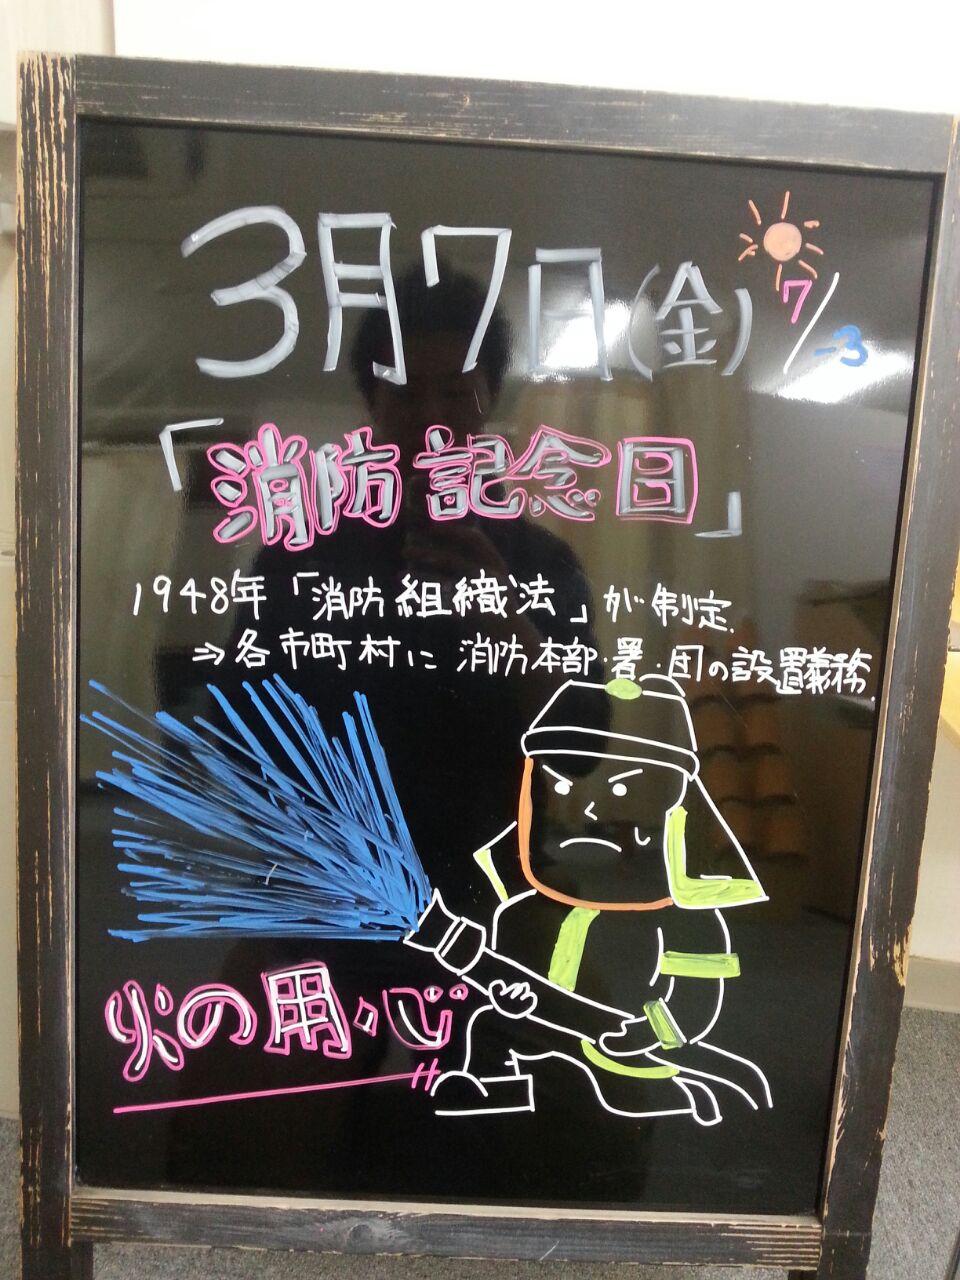 3月7日(金) 7/-3
「消防記念日」
1948年「消防組織法」が制定.
⇒各市町村に消防本部・署・団の設置義務.
火の用・心